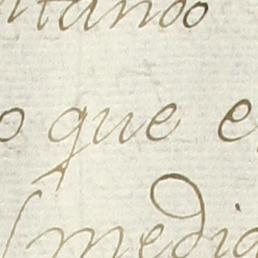 ntando
o que e
medio